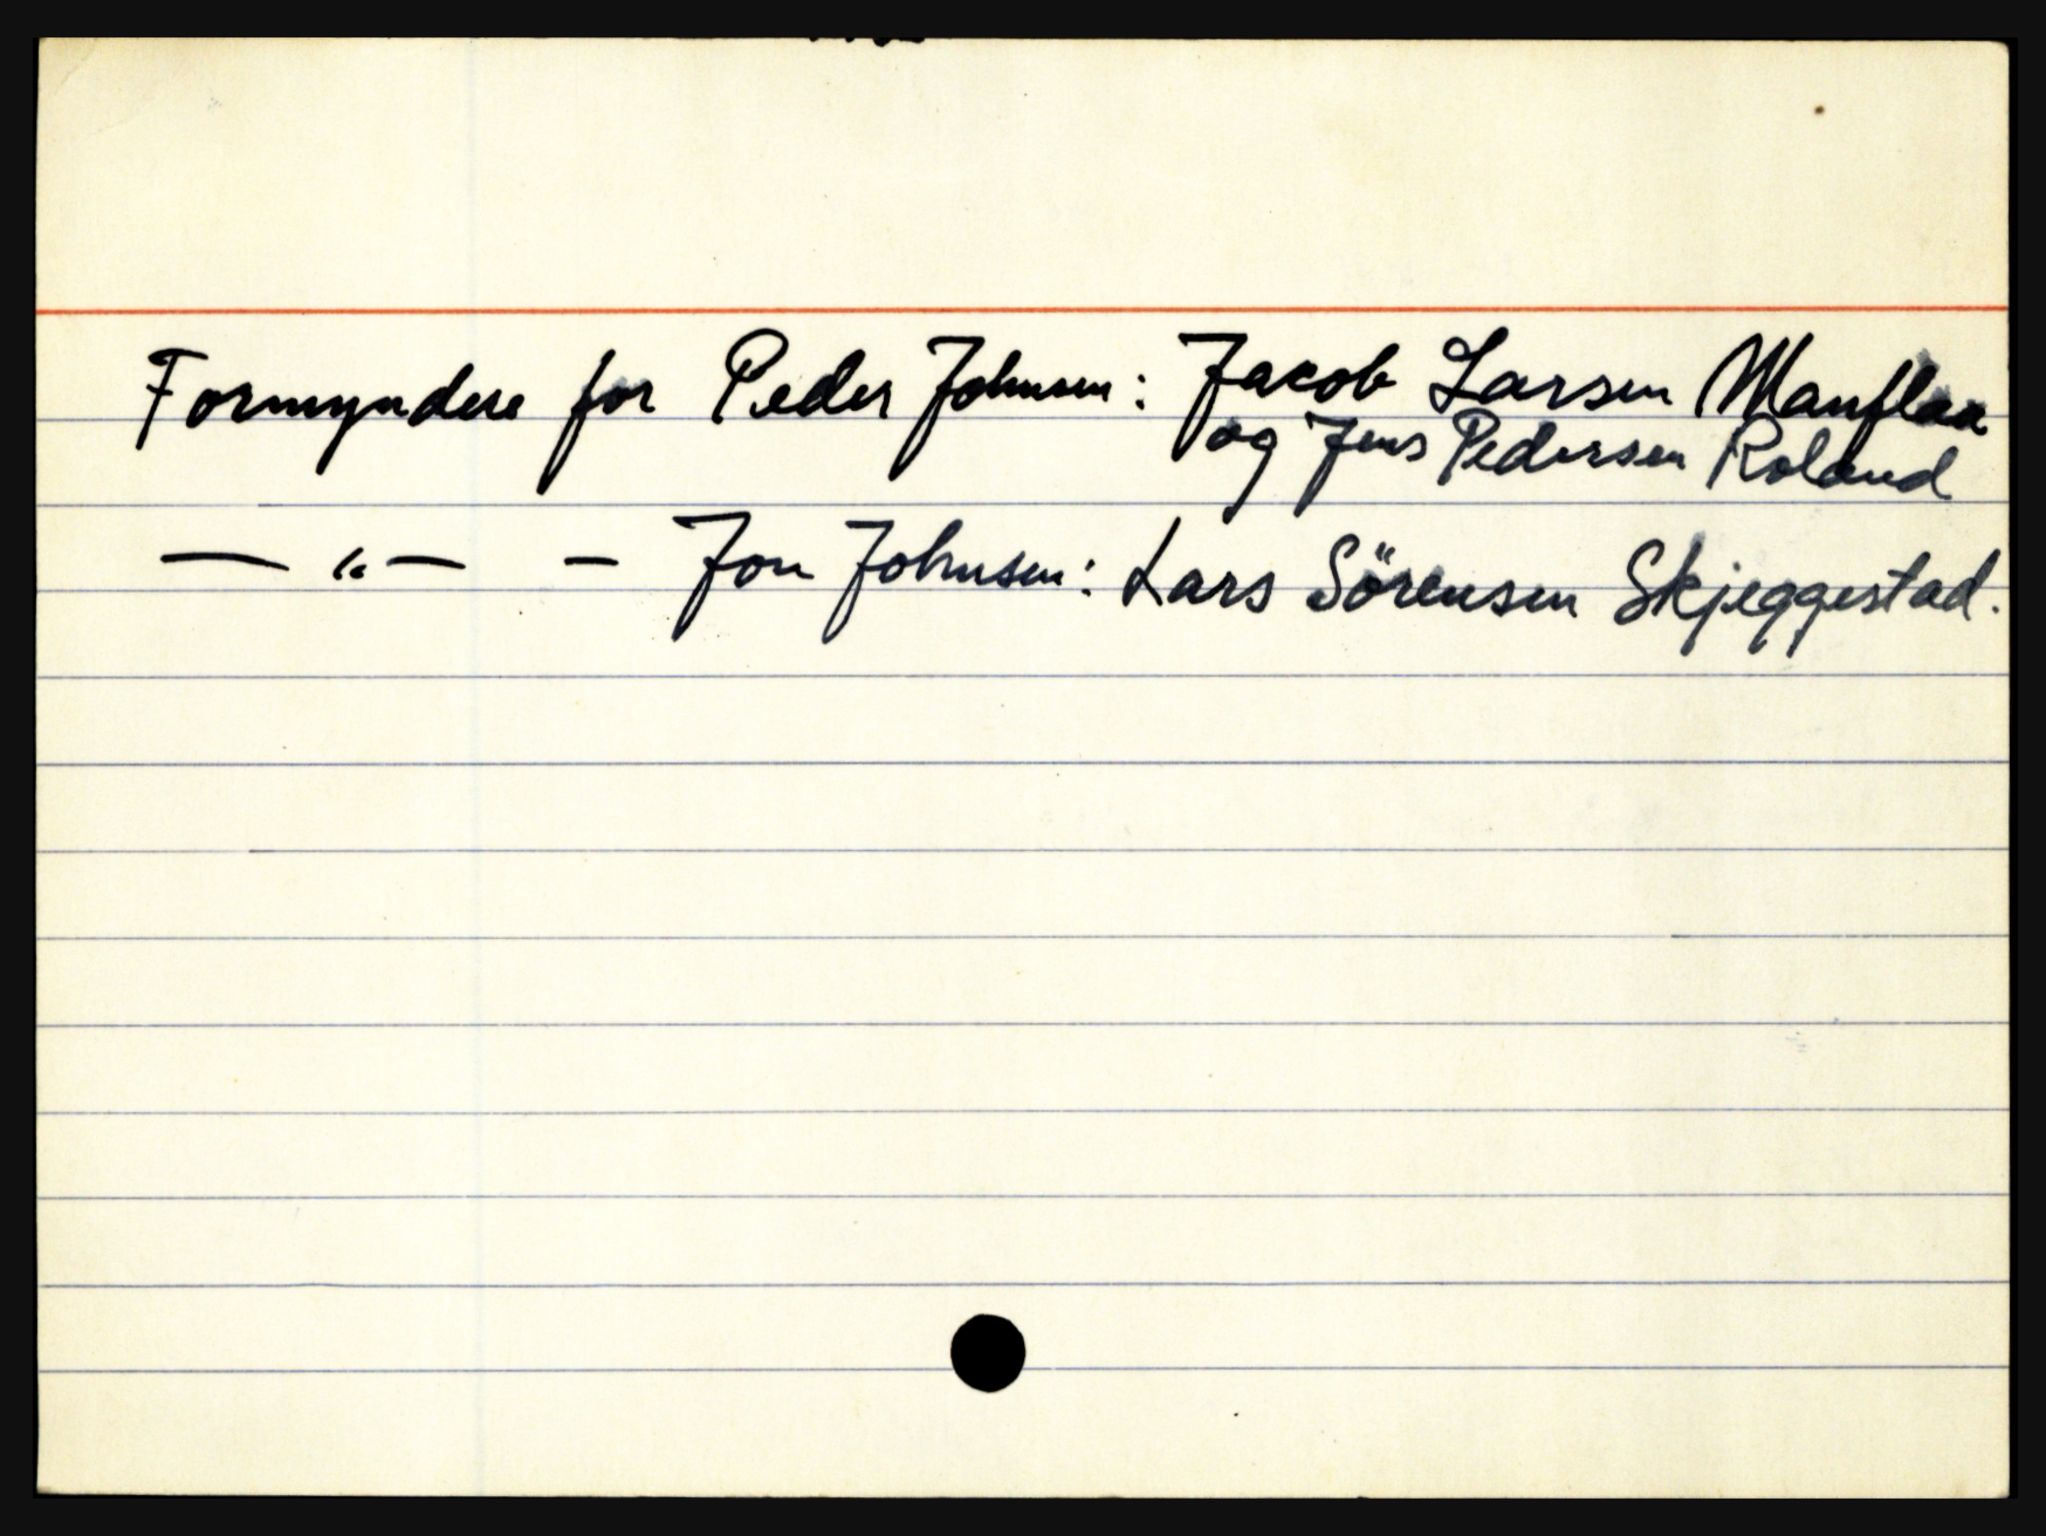 Formyndere for Peder Johnsen: Jacob Larsen Manflaa
og Jens Pedersen Roland
— „ — — Jon Johnsen: Lars Sörensen Skjeggestad.